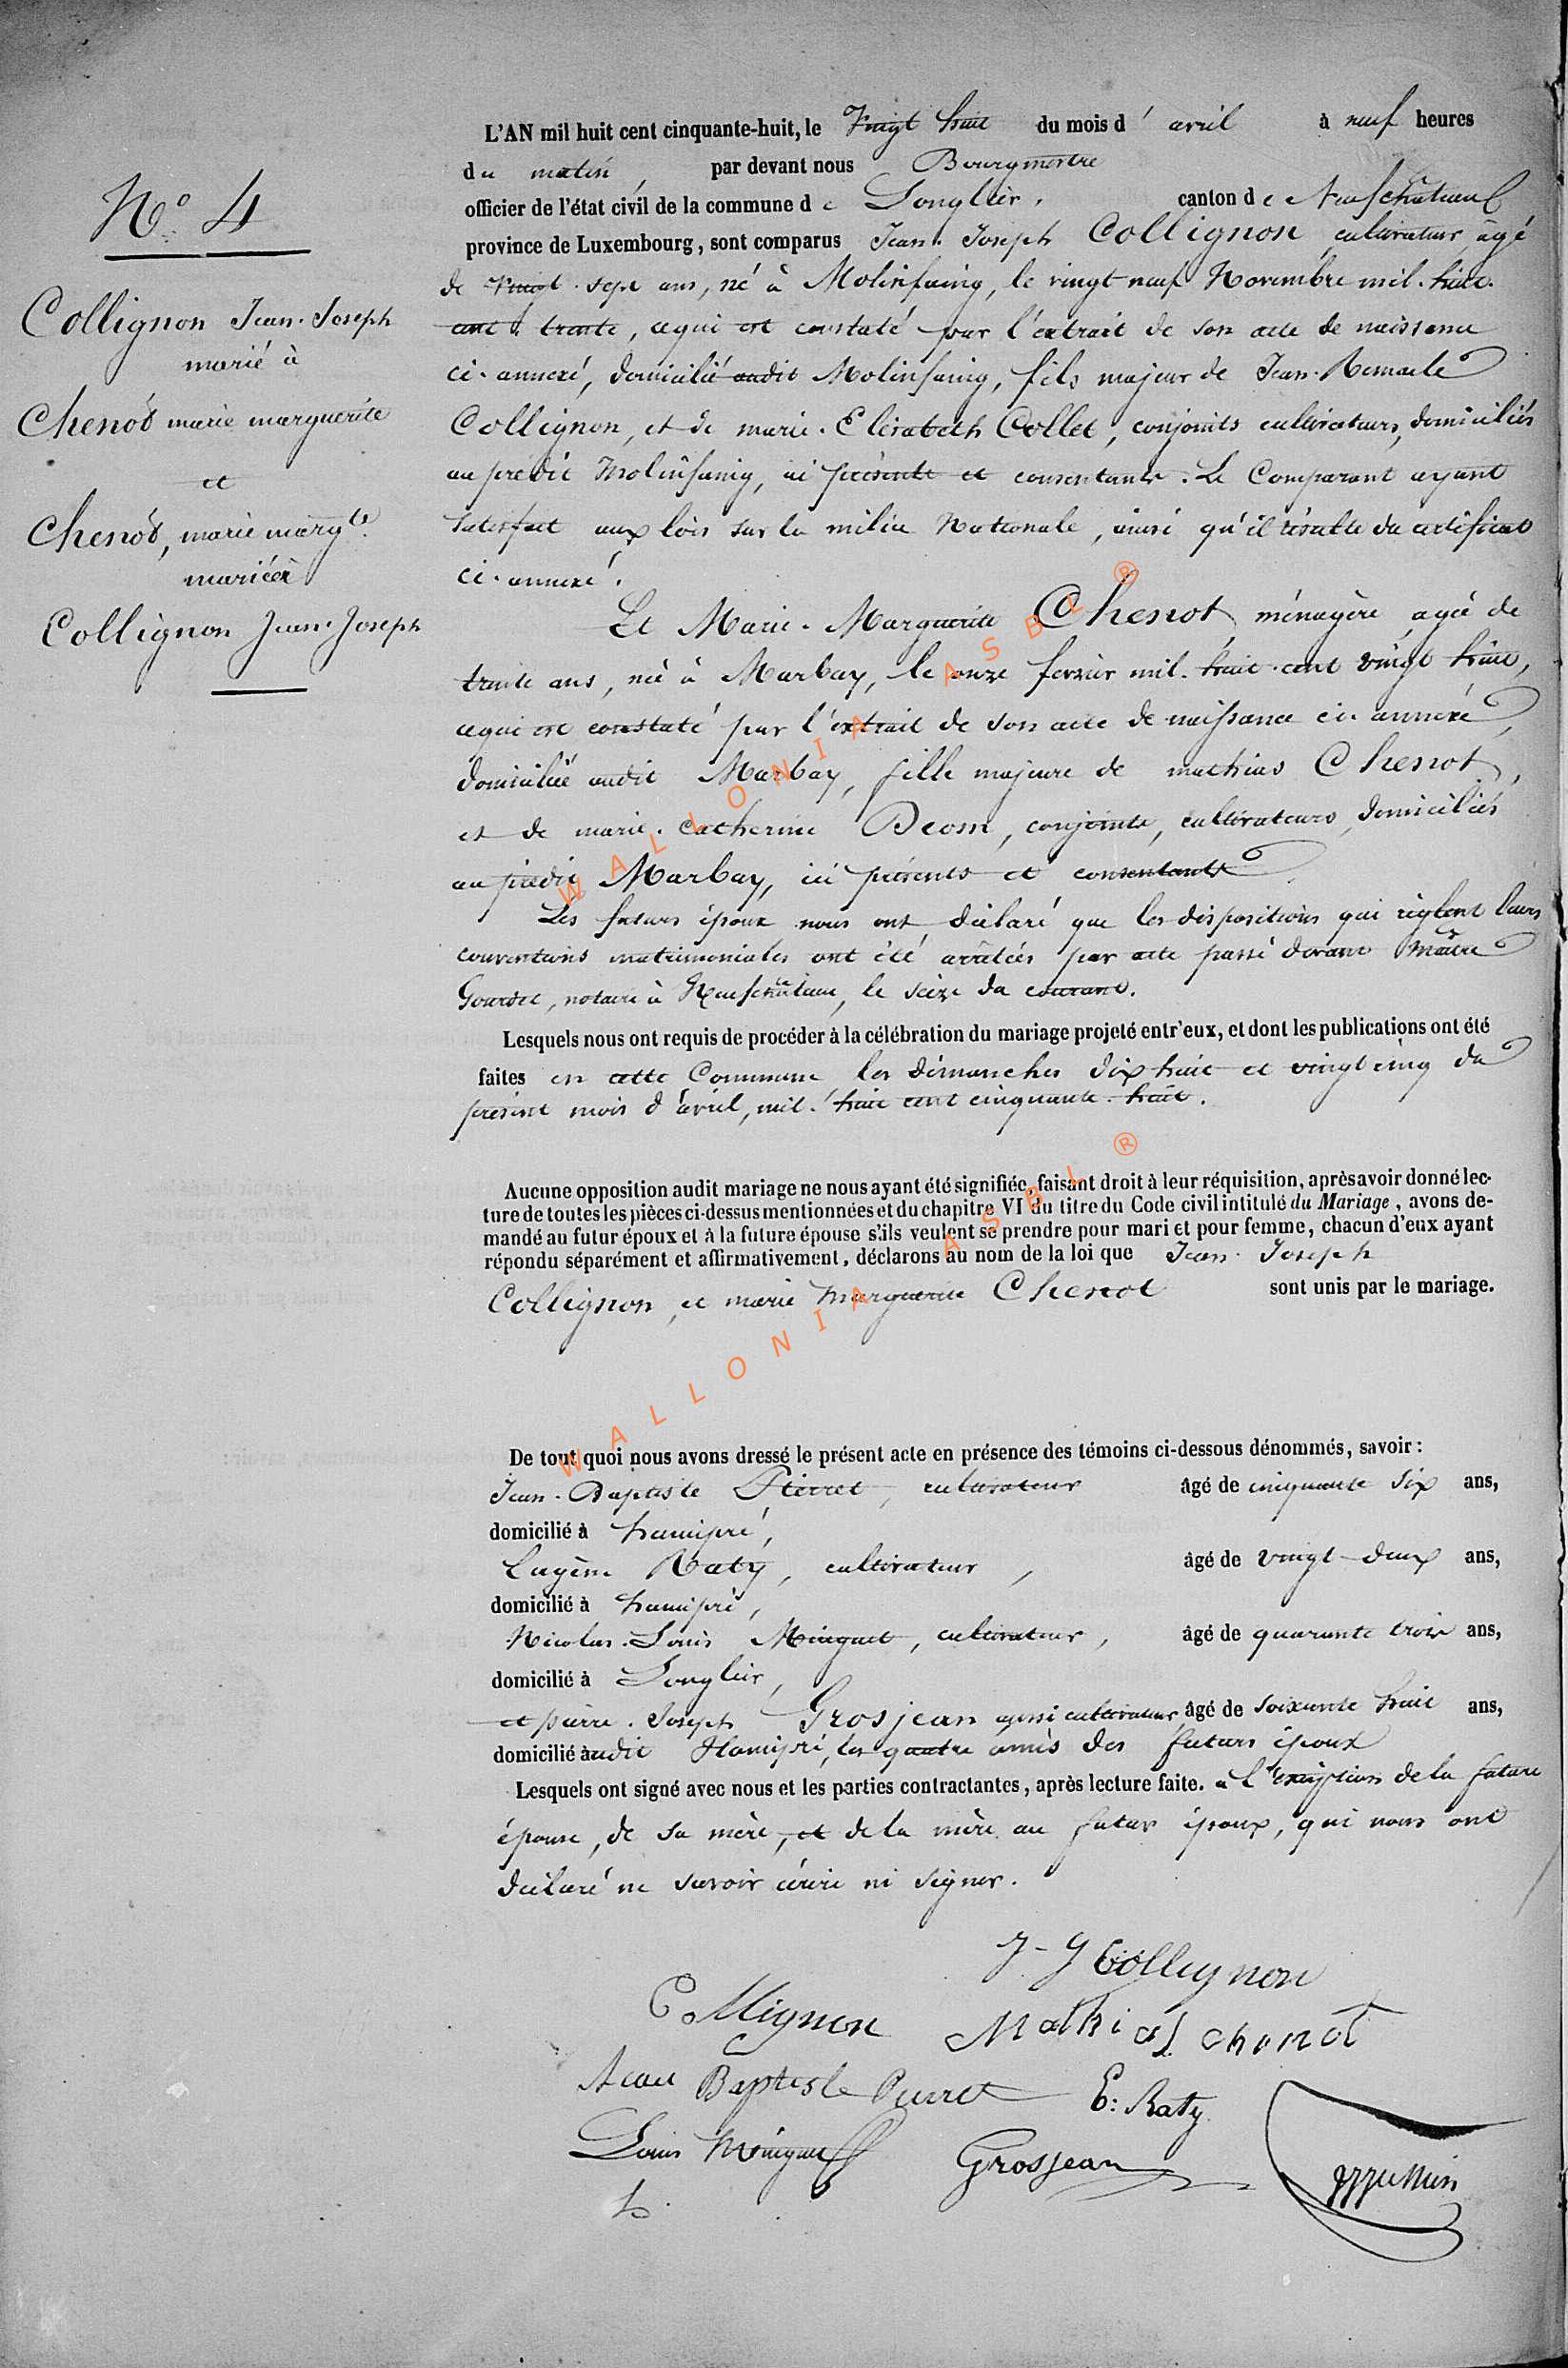 N° 4
Collignon Jean-Joseph
marié à
Chenôt marie marguerite
et
Chenôt, marie margte
mariée à
Collignon Jean-Joseph
L'AN mil huit cent cinquante-huit, le Vingt huit du mois d' avril à neuf heures
du matin, par devant nous Bourgmestre
officier de l'état civil de la commune de Longlier, canton de Neufchâteau
province de Luxembourg, sont comparus Jean-Joseph Collignon cultivateur, âgé
de vingt-sept ans, né à Molinfaing, le vingt neuf Novembre mil-huit-
cent trente, ce qui est constaté par l'extrait de son acte de naissance
ci-annexé, domicilié audit Molinfaing, fils majeur de Jean-Remacle
Collignon, et de marie-Elisabeth Collet, conjoints cultivateurs, domiciliés
au prédit Molinfaing, ici présents et consentants. Le Comparant ayant
satisfait aux lois sur la milice Nationale, ainsi qu'il résulte du certificat
ci-annexé.
Et Marie-Marguerite Chenot, ménagère, agée de
trente ans, née à Marbay, le onze fevrier mil-huit-cent vingt huit,
ce qui est constaté par l'extrait de son acte de naissance ci-annéxé,
domiciliée audit Marbay, fille majeure de mathias Chenot,
et de marie-catherine Deom, conjoints, cultivateurs, domiciliés
au prédit Marbay, ici présents et consentants
Les futurs époux nous ont déclaré que les dispositions qui règlent leurs
conventions matrimoniales ont été arrêtées par acte passé devant Maître
Gourdet, notaire à Neufchâteau, le seize du courant.
Lesquels nous ont requis de procéder à la célébration du mariage projeté entr'eux, et dont les publications ont été
faites en cette Commune les dimanches dix huit et vingt cinq du
présent mois d'avril, mil-huit cent cinquante-huit.
Aucune opposition audit mariage ne nous ayant été signifiée, faisant droit à leur réquisition, après avoir donné lec-
ture de toutes les pièces ci-dessus mentionnées et du chapitre VI du titre du Code civil intitulé du Mariage, avons de-
mandé au futur époux et à la future épouse s'ils veulent se prendre pour mari et pour femme, chacun d'eux ayant
répondu séparément et affirmativement, déclarons au nom de la loi que Jean-Joseph
Collignon, et marie Marguerite Chenot sont unis par le mariage.
De tout quoi nous avons dressé le présent acte en présence des témoins ci-dessous dénommés, savoir:
Jean-Baptiste Pierret, cultivateur âgé de cinquante six ans,
domicilié à hamipré,
Eugène Raty, cultivateur, âgé de vingt-deux ans,
domicilié à hamipré,
Nicolas-Louis Minguet, cultivateur, âgé de quarante trois ans,
domicilié à Longlier,
et pierre-Joseph Grosjean aussi cultivateur, âgé de soixante huit ans,
domicilié audit Hamipré, les quatre amis des futurs époux
Lesquels ont signé avec nous et les parties contractantes, après lecture faite. à l'exception de la future
épouse, de sa mère, et de la mère au futur époux, qui nous ont
déclaré ne savoir écrire ni signer.
J-J Collignon
Collignon Mathias chenot
Jean Baptiste Pierret E: Raty
Louis Minguet Grosjean
WALLONIA ASBL ®
WALLONIA ASBL ®